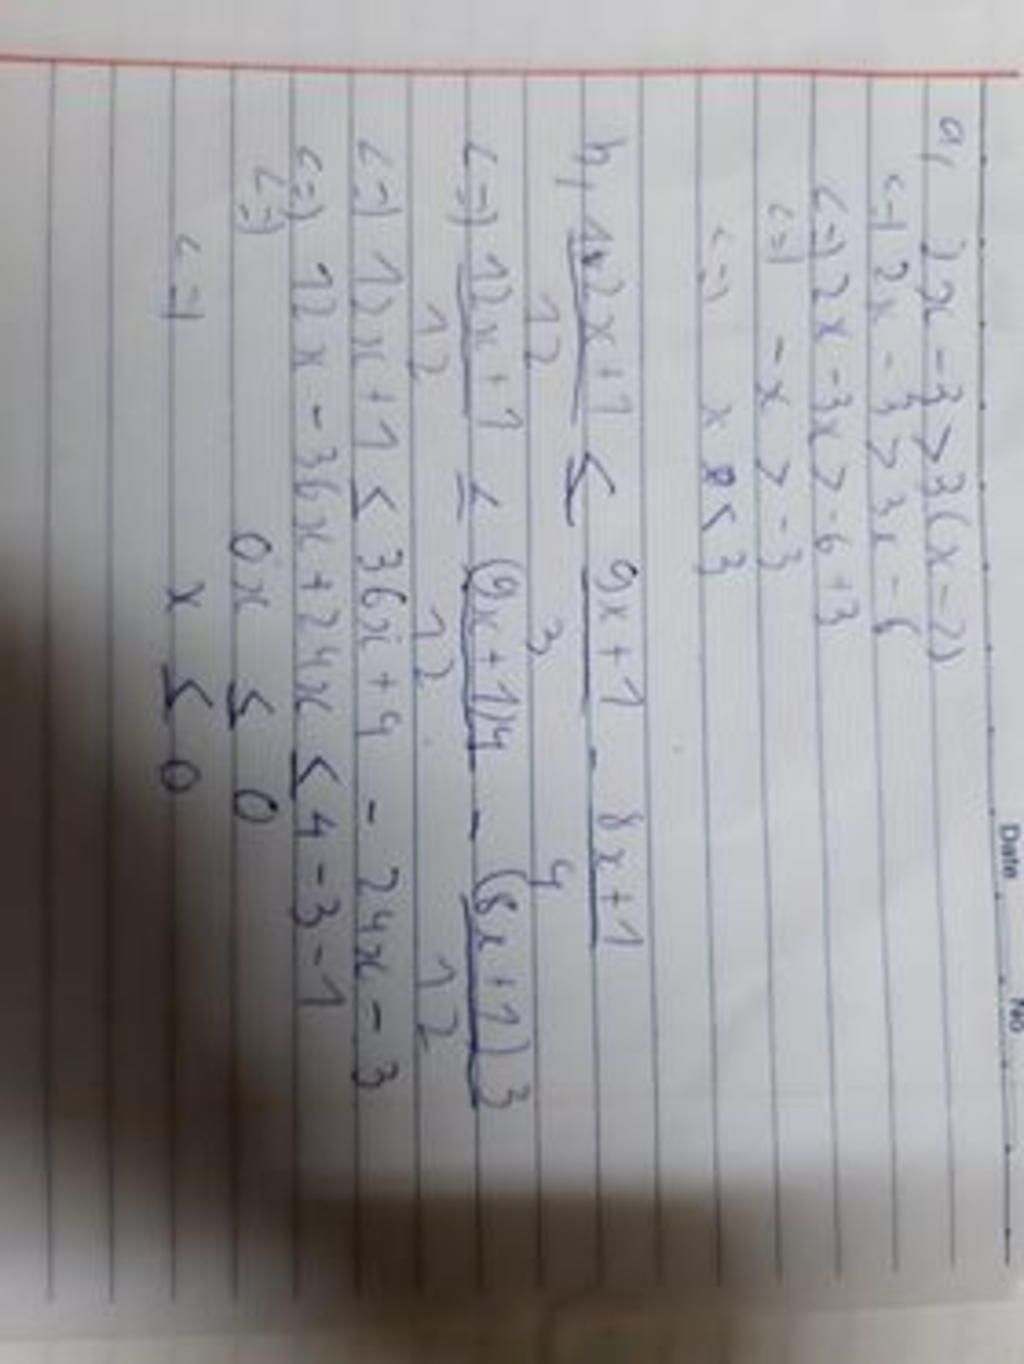 Date No
a, 2x - 3 > 3(x - 2)
<=> 2x - 3 > 3x - 6
<=> 2x - 3x > -6 + 3
<=> -x > -3
<=> x < 3
b, 12x + 1 ≤ 9x + 1 - 8x + 1
12 3 4
<=> 12x + 1 ≤ (9x + 1)4 - (8x + 1)3
12 12 12
<=> 12x + 1 ≤ 36x + 4 - 24x - 3
<=> 12x - 36x + 24x ≤ 4 - 3 - 1
<=> 0x ≤ 0
<=> x ≤ 0